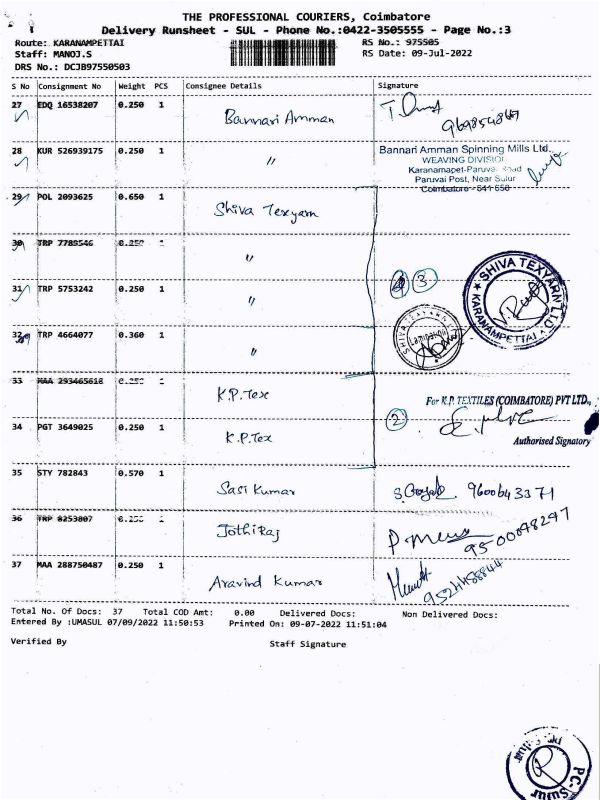 THE PROFESSIONAL COURIERS, Coimbatore
Delivery Runsheet - SUL - Phone No.:0422-3505555 - Page No.:3
Route: KARANAMPETTAI RS No.: 975505
Staff: MANOJ.S RS Date: 09-Jul-2022
DRS No.: DCJB97550503
S No Consignment No Weight PCS Consignee Details Signature
27 EDQ 16538207 0.250 1 Bannari Amman
28 KUR 526939175 0.250 1 〃
Bannari Amman Spinning Mills Ltd.,
WEAVING DIVISION
Karanamapet-Paruvai Road
Paruvai Post, Near Sulur
Coimbatore - 641 658
29 POL 2093625 0.650 1 Shiva Texyarn
30 TRP 7789546 0.250 1 〃
31 TRP 5753242 0.250 1 〃
3
SHIVA TEXYARN LTD
KARANAMPETTAI
32 TRP 4664077 0.360 1 〃
33 MAA 293465618 0.250 1 K.P.Tex
For K.P. TEXTILES (COIMBATORE) PVT LTD.,
2
34 PGT 3649025 0.250 1 K.P.Tex
Authorised Signatory
35 STY 782843 0.570 1 Sasi Kumar 9600643371
36 TRP 8253807 0.250 1 Jothi Raj 9500098297
37 MAA 288750487 0.250 1 Aravind Kumar
Total No. Of Docs: 37 Total COD Amt: 0.00 Delivered Docs: Non Delivered Docs:
Entered By :UMASUL 07/09/2022 11:50:53 Printed On: 09-07-2022 11:51:04
Verified By Staff Signature
PC-Sulur